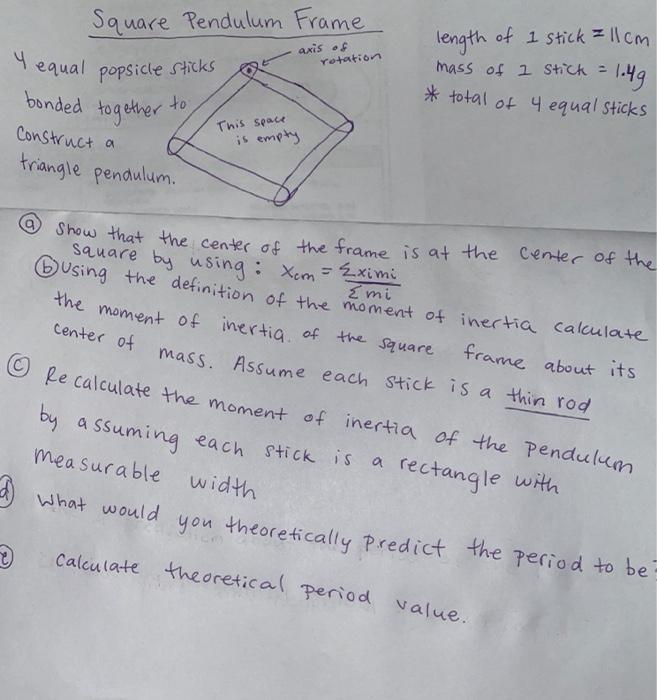 Square Pendulum Frame
4 equal popsicle sticks
bonded together to
construct a
triangle pendulum.
axis of
rotation
This space
is empty
length of 1 stick = 11cm
mass of 1 stick = 1.4g
* total of 4 equal sticks
(a) Show that the center of the frame is at the center of the
square by using: Xcm = Σximi / Σmi
(b) Using the definition of the moment of inertia calculate
the moment of inertia of the square frame about its
center of mass. Assume each stick is a thin rod
(c) Recalculate the moment of inertia of the pendulum
by assuming each stick is a rectangle with
measurable width
(d) What would you theoretically predict the period to be?
(e) Calculate theoretical period value.